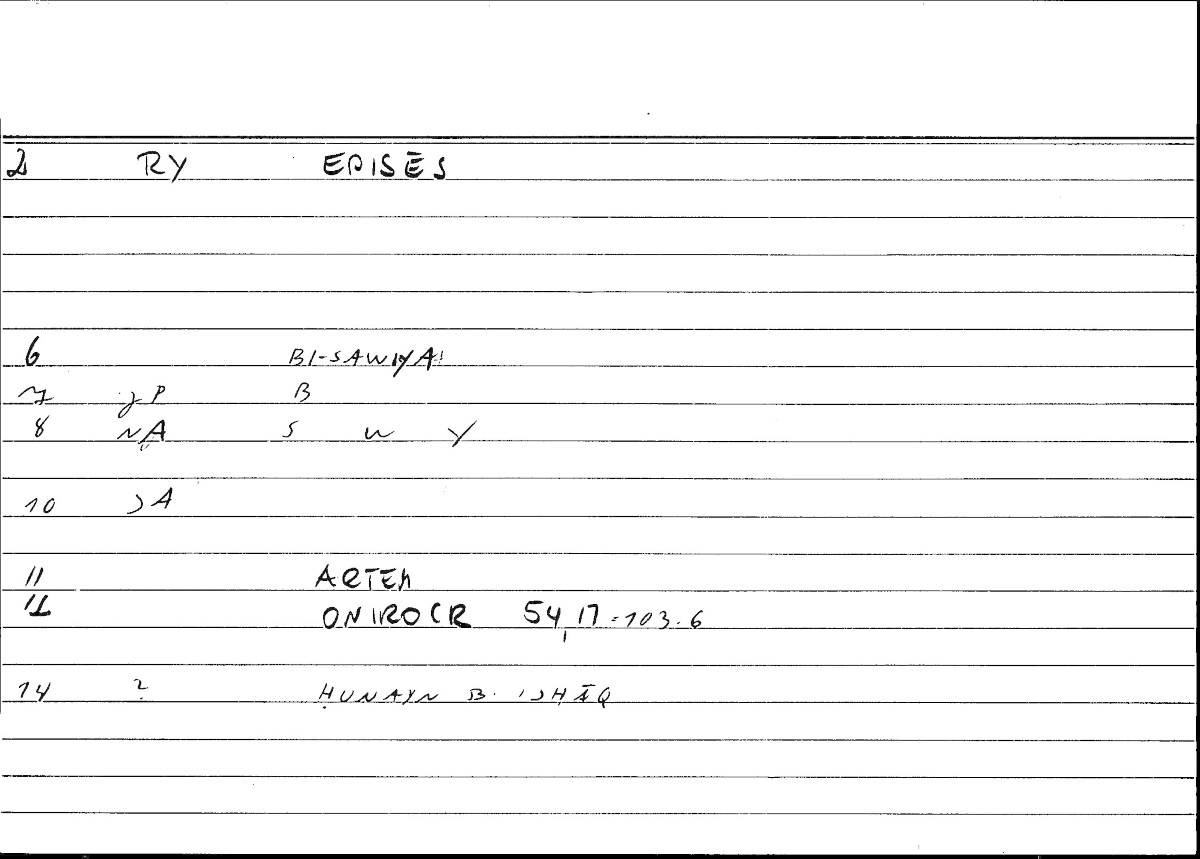 2 RY EPISĒS
6 BI-SAWIYA
7 gP B
8 NA S W Y
10 JA
11 ARTEM
12 ONIROCR 54,17-103.6
14 ? ḤUNAYN B. ISḤĀQ